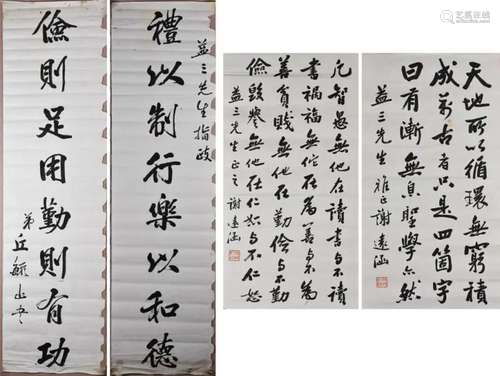 益三先生指政
禮以制行樂以和德
儉則足用勤則有功
弟丘毓
天地所以循環無窮積
成萬古者只是四箇字
曰有漸無息聖學亦然
益三先生雅正謝遠涵
凡智愚無他在讀書与不讀
書禍福無佗在為善与不為
善貧賤無他在勤儉与不勤
儉毀譽無他在仁恕与不仁恕
益三先生正之謝遠涵